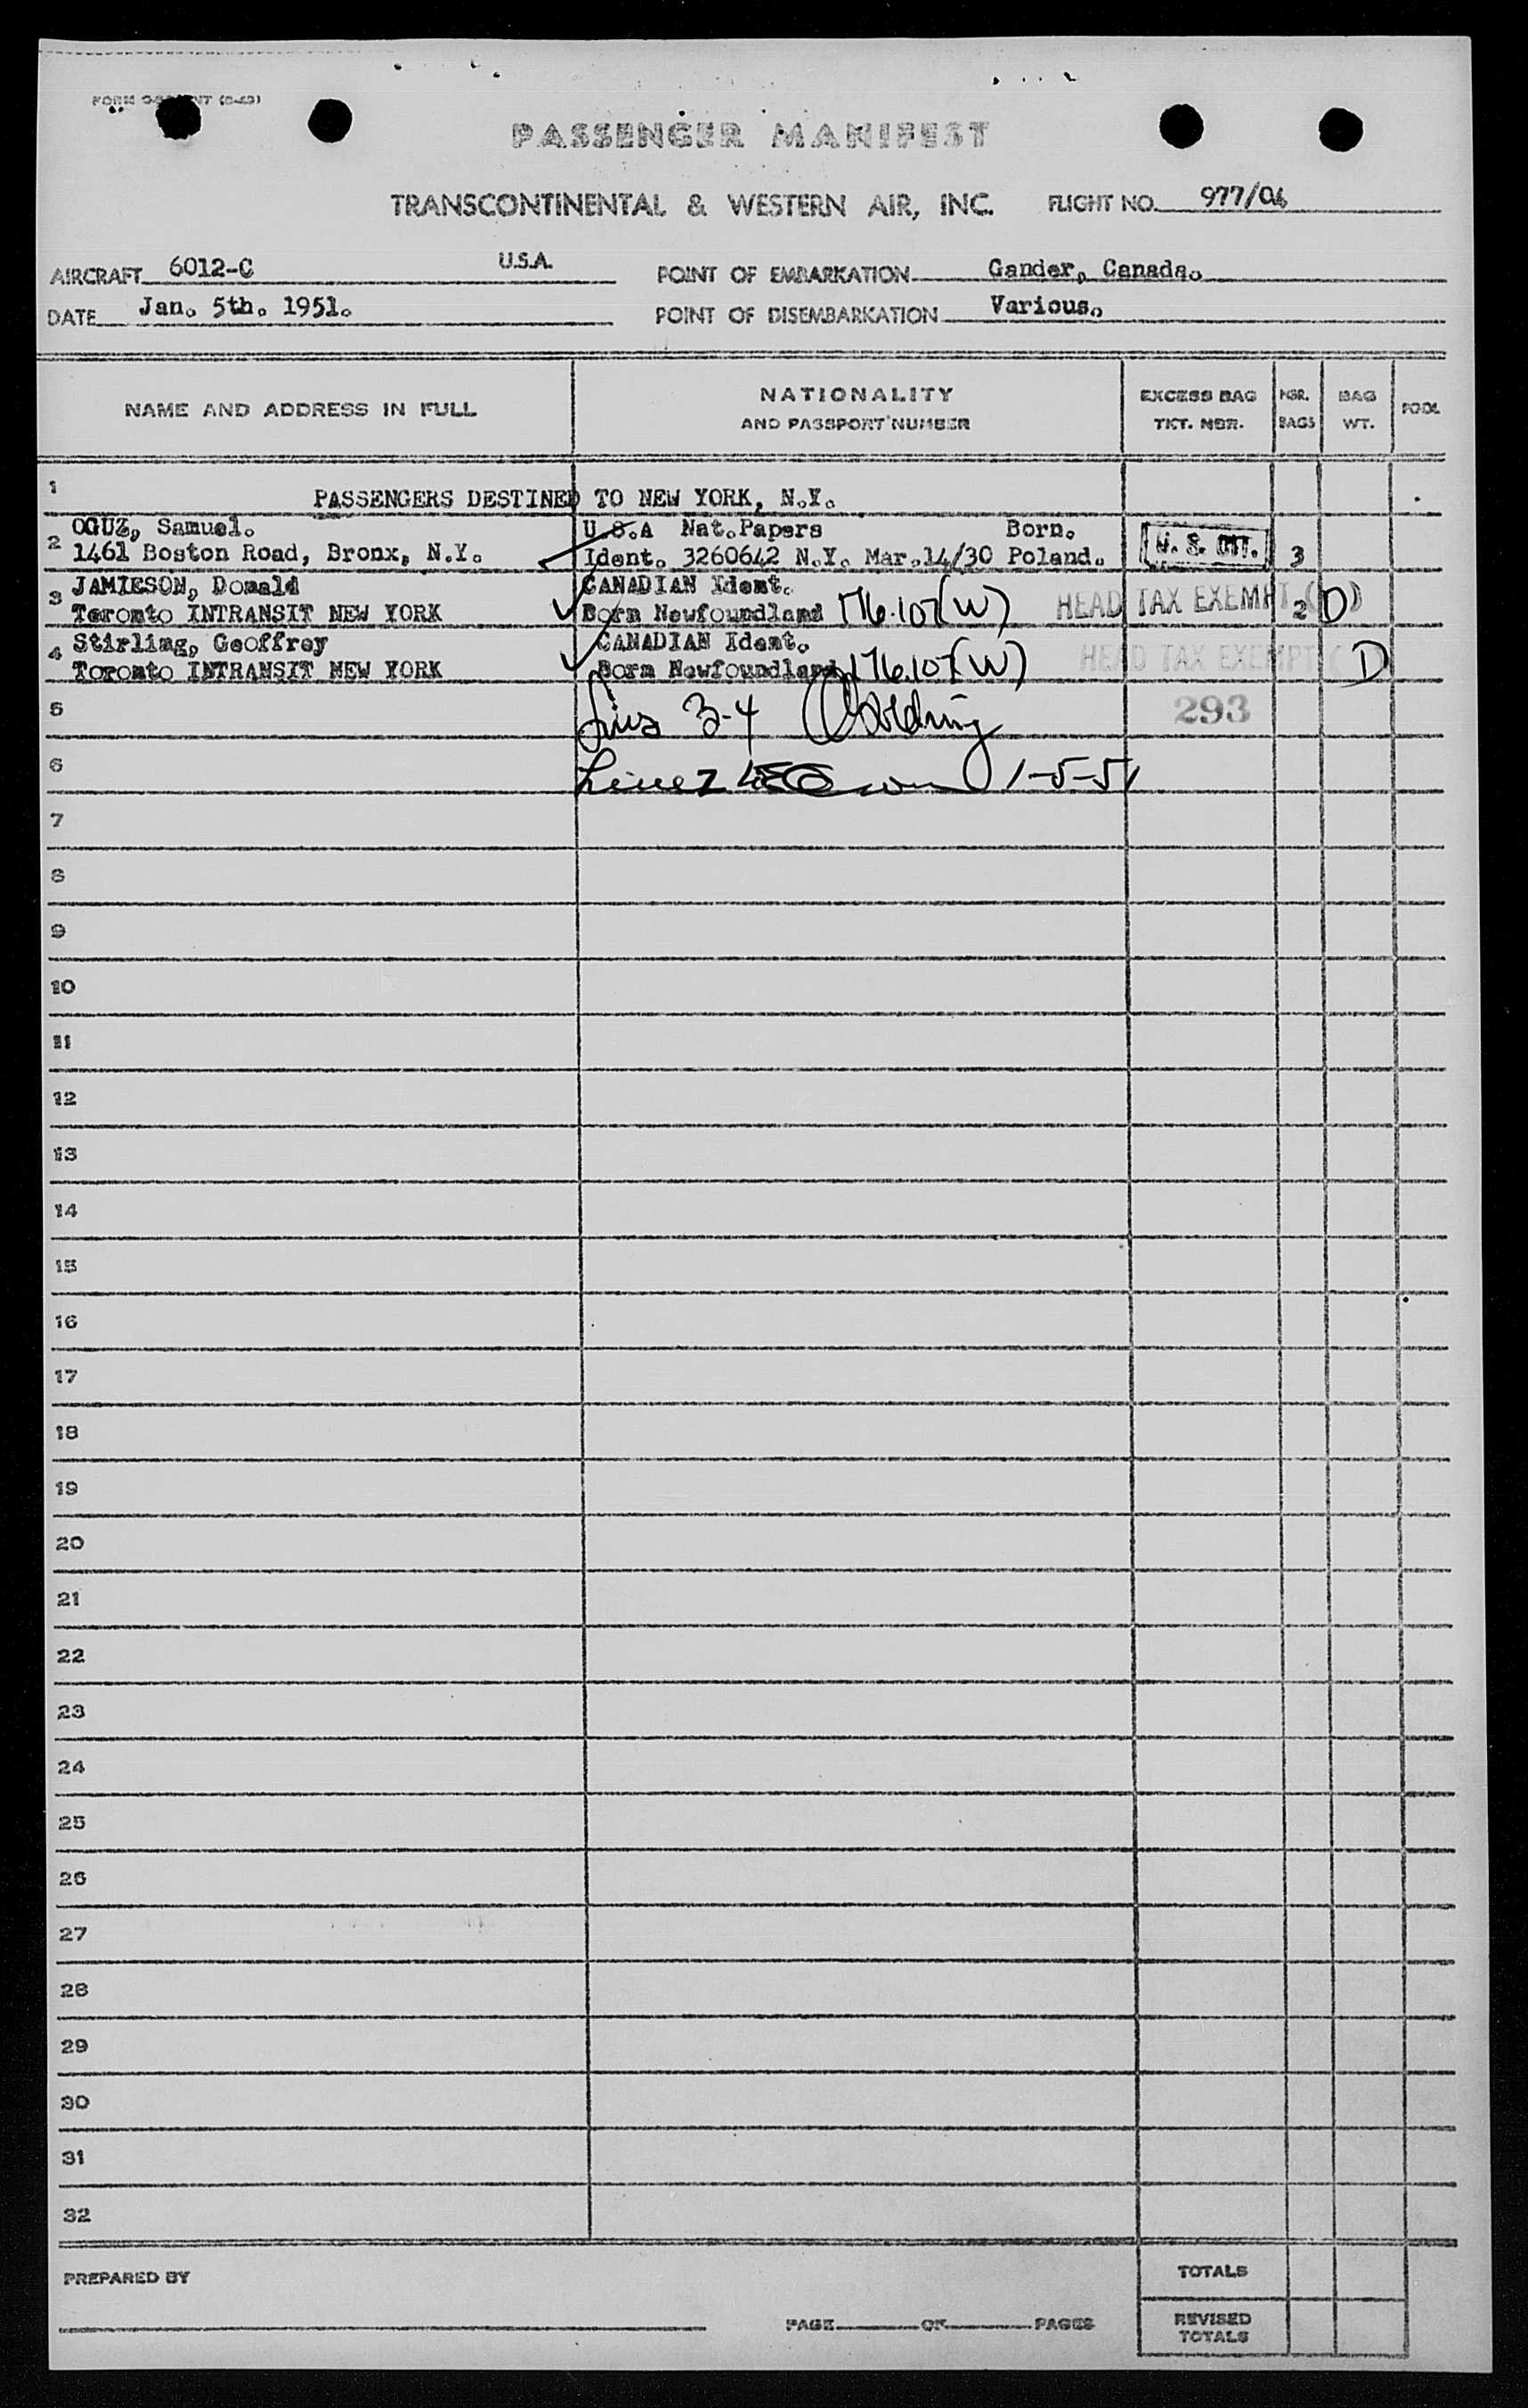 PASSENGER MANIFEST
TRANSCONTINENTAL & WESTERN AIR, INC. FLIGHT NO. 977/04
AIRCRAFT 6012-C U.S.A. POINT OF EMBARKATION Gander, Canada.
DATE Jan. 5th. 1951. POINT OF DISEMBARKATION Various.
NAME AND ADDRESS IN FULL
NATIONALITY
AND PASSPORT NUMBER
EXCESS BAG
TKT. NBR.
NBR.
BAGS
BAG
WT.
1
PASSENGERS DESTINED TO NEW YORK, N.Y.
2 OGUZ, Samuel. U.S.A Nat.Papers Born.
1461 Boston Road, Bronx, N.Y. Ident. 3260642 N.Y. Mar.14/30 Poland. U. S. CIT. 3
3 JAMIESON, Donald CANADIAN Ident.
Toronto INTRANSIT NEW YORK Born Newfoundland 176.107(W) HEAD TAX EXEMPT (D) 2
4 Stirling, Geoffrey CANADIAN Ident.
Toronto INTRANSIT NEW YORK Born Newfoundland 176.107(W) HEAD TAX EXEMPT ( D
5 Lines 3-4 293
6 Line 2 1-5-51
7
8
9
10
11
12
13
14
15
16
17
18
19
20
21
22
23
24
25
26
27
28
29
30
31
32
PREPARED BY
TOTALS
PAGE OF PAGES
REVISED
TOTALS